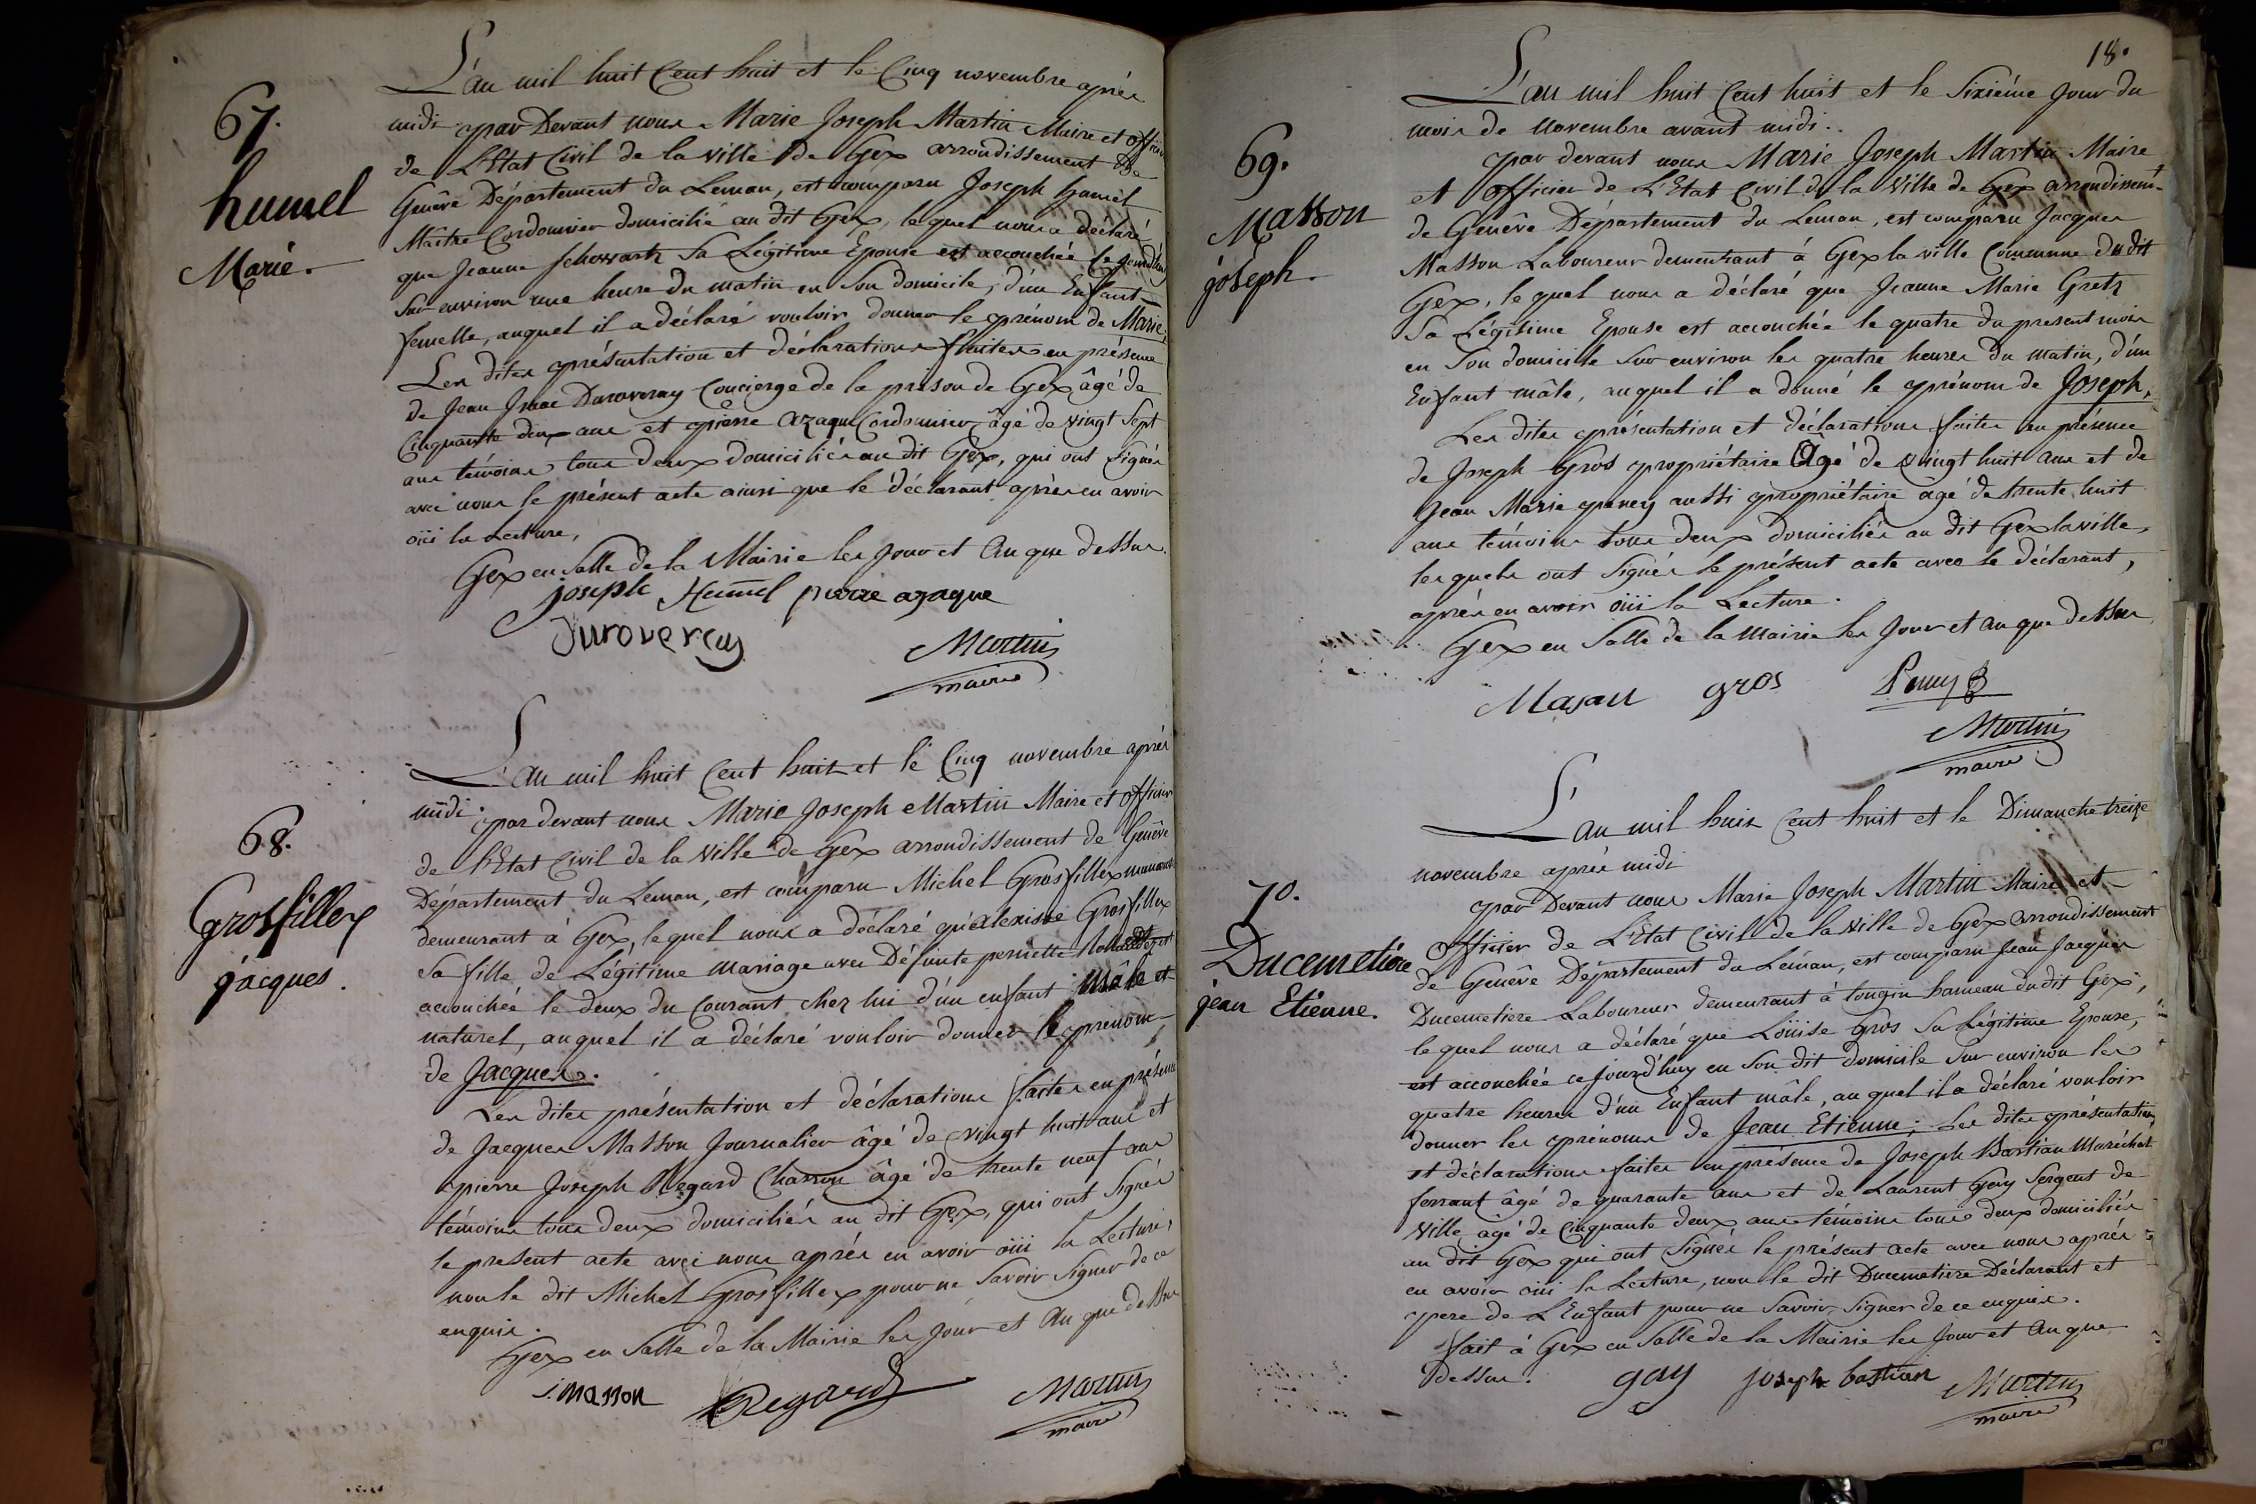 67.
humel
Marie.
L'an mil huit Cent huit et le Cinq novembre après
midi par Devant nous Marie Joseph Martin Maire et officier
de L'Etat Civil de la ville de Gex arrondissement de
Genève Département du Leman, est comparu Joseph humel
Maître Cordonnier domicilié au dit Gex, lequel nous a déclaré
que Jeanne Schowartz Sa Légitime Epouse est accouchée ce jourd'huy
Sur environ une heure du matin en Son domicile, d'un Enfant
femelle, auquel il a déclaré vouloir donner le prénom de Marie;
Les dites présentation et déclarations faites en présence
de Jean Isaac Duroveray Concierge de la prison de Gex âgé de
Cinquante deux ans et pierre azaque Cordonnier âgé de vingt Sept
ans témoins tous deux domiciliés au dit Gex, qui ont Signés
avec nous le présent acte ainsi que le déclarant après en avoir
oüi la Lecture,
Gex en Salle de la Mairie les Jour et An que dessus.
joseph Humel pierre azaque
Duroveray
Martin
maire
68.
Grosfillex
jacques.
L'an mil huit Cent huit et le Cinq novembre après
midi par devant nous Marie Joseph Martin Maire et officier
de l'Etat Civil de la Ville de Gex arrondissement de Genève
Département du Leman, est comparu Michel Grosfillex
demeurant à Gex, lequel nous a déclaré qu'alexisse Grosfillex
Sa fille de Légitime mariage avec Défunte pernette est
accouchée le deux du Courant chez lui d'un enfant mâle et
naturel, auquel il a déclaré vouloir donner le prenom
de Jacques.
Les dites présentation et déclarations faites en présence
de Jacques Masson Journalier âgé de vingt huit ans et
pierre Joseph Regard Charron âgé de trente neuf ans
témoins tous deux domiciliés au dit Gex, qui ont Signés
le present acte avec nous après en avoir oüi la Lecture,
non le dit Michel Grosfillex pour ne Savoir Signer de ce
enquis.
Gex en Salle de la Mairie les Jour et An que dessus
J. Masson Regard Martin
maire
18.
69.
Masson
joseph.
L'an mil huit Cent huit et le Sixième Jour du
mois de Novembre avant midi.
par devant nous Marie Joseph Martin Maire
et officier de L'Etat Civil de la Ville de Gex arrondissemt
de Genève Département du Leman, est comparu Jacques
Masson Laboureur demeurant à Gex la ville Commune du dit
Gex, lequel nous a déclaré que Jeanne Marie Gretz
Sa Légitime Epouse est accouchée le quatre du present mois
en Son domicile Sur environ les quatre heures du matin, d'un
Enfant mâle, auquel il a donné le prénom de Joseph,
Les dites présentation et déclarations faites en présence
de Joseph Gros propriétaire Agé de vingt huit ans et de
Jean Marie peney aussi propriétaire âgé de trente huit
ans témoins tous deux domiciliés au dit Gex la ville,
lesquels ont Signés le présent acte avec le déclarant,
après en avoir oüi la Lecture.
Gex en Salle de la Mairie les Jour et An que dessus
Masau gros Peney
Martin
maire
70.
Ducemetiere
jean Etienne.
L'an mil huit Cent huit et le Dimanche treize
novembre après midi
par Devant nous Marie Joseph Martin Maire et
officier de L'Etat Civil de la Ville de Gex arrondissement
de Genève Département du Leman, est comparu Jean Jacques
Ducemetiere Laboureur demeurant à tougin hameau du dit Gex,
lequel nous a déclaré que Loüise Gros Sa Légitime Epouse,
est accouchée ce jourd'huy en Son dit domicile Sur environ les
quatre heures d'un Enfant mâle, auquel il a déclaré vouloir
donner les prénoms de Jean Etienne; Les dites présentation
et déclarations faites en présence de Joseph Bastian Maréchal
ferrant âgé de quarante ans et de Laurent Gay Sergent de
Ville agé de Cinquante deux ans témoins tous deux domiciliés
au dit Gex qui ont Signés le présent acte avec nous après
en avoir oüi la Lecture, non le dit Ducemetiere Déclarant et
pere de L'Enfant pour ne Savoir Signer de ce enquis.
fait à Gex en Salle de la Mairie les Jour et An que
dessus. gay joseph bastian Martin
maire